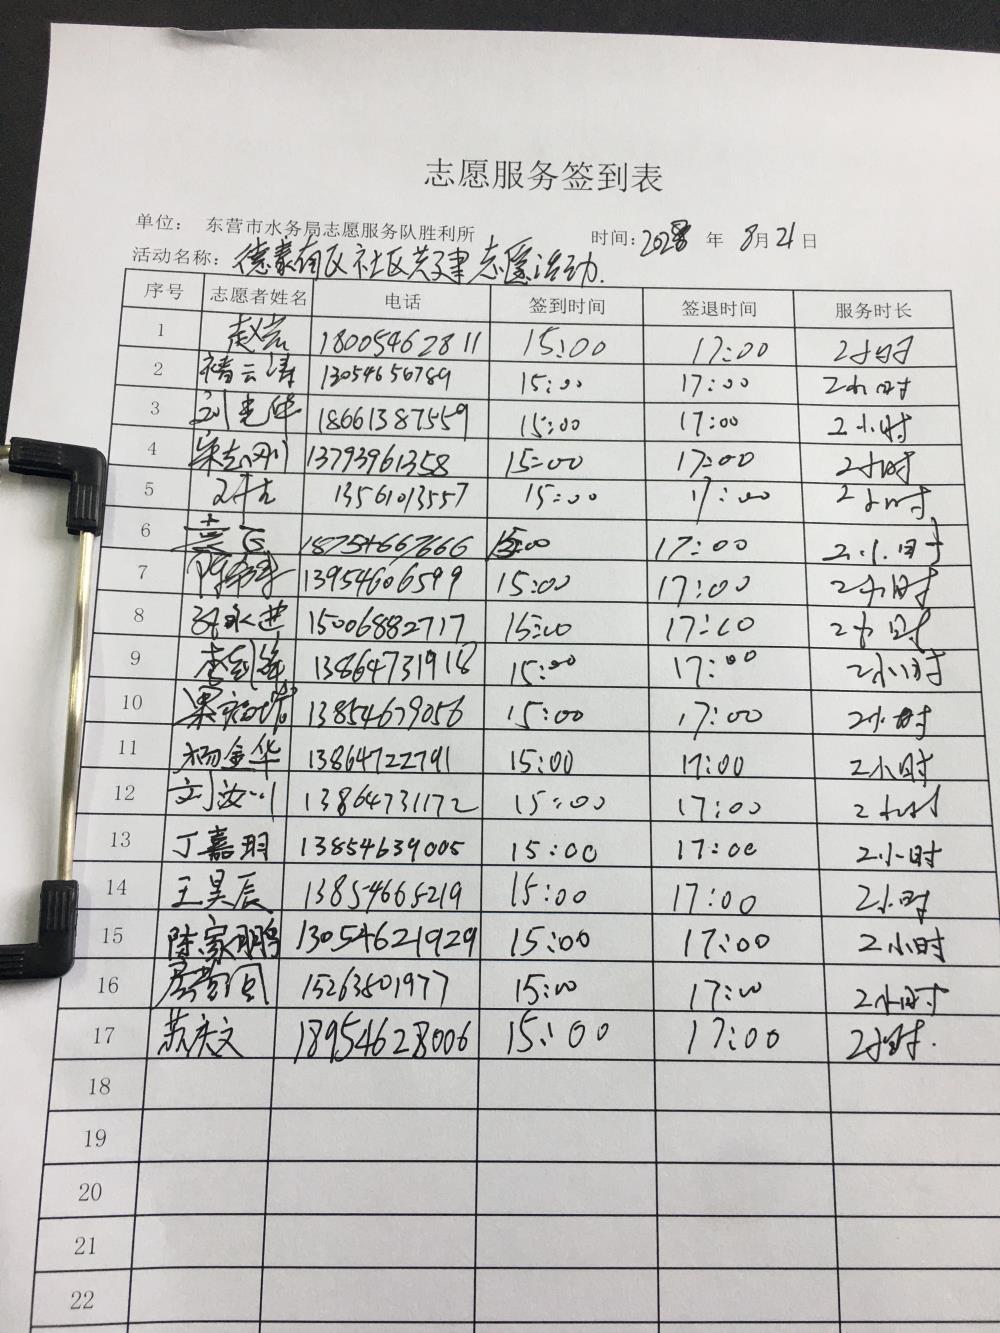 志愿服务签到表
单位： 东营市水务局志愿服务队胜利所 时间：2028 年 8月21日
活动名称：德蒙南区社区共建志愿活动.
序号 志愿者姓名 电话 签到时间 签退时间 服务时长
1 赵岩 18005462811 15:00 17:00 2小时
2 云涛 13054656789 15:00 17:00 2小时
3 刘光华 18661387559 15:00 17:00 2小时
4 宋志刚 13793961358 15:00 17:00 2小时
5 13561013557 15:00 17:00 2小时
6 18754667666 15:00 17:00 2小时
7 13954606599 15:00 17:00 2小时
8 永进 15006882717 15:00 17:00 2小时
9 李剑锋 13864731918 15:00 17:00 2小时
10 13854679056 15:00 17:00 2小时
11 杨金华 13864722791 15:00 17:00 2小时
12 刘汝川 13864731172 15:00 17:00 2小时
13 丁嘉羽 13854639005 15:00 17:00 2小时
14 王昊辰 13854665219 15:00 17:00 2小时
15 陈家鹏 13054621929 15:00 17:00 2小时
16 15263801977 15:00 17:00 2小时
17 苏庆文 18954628006 15:00 17:00 2小时.
18
19
20
21
22